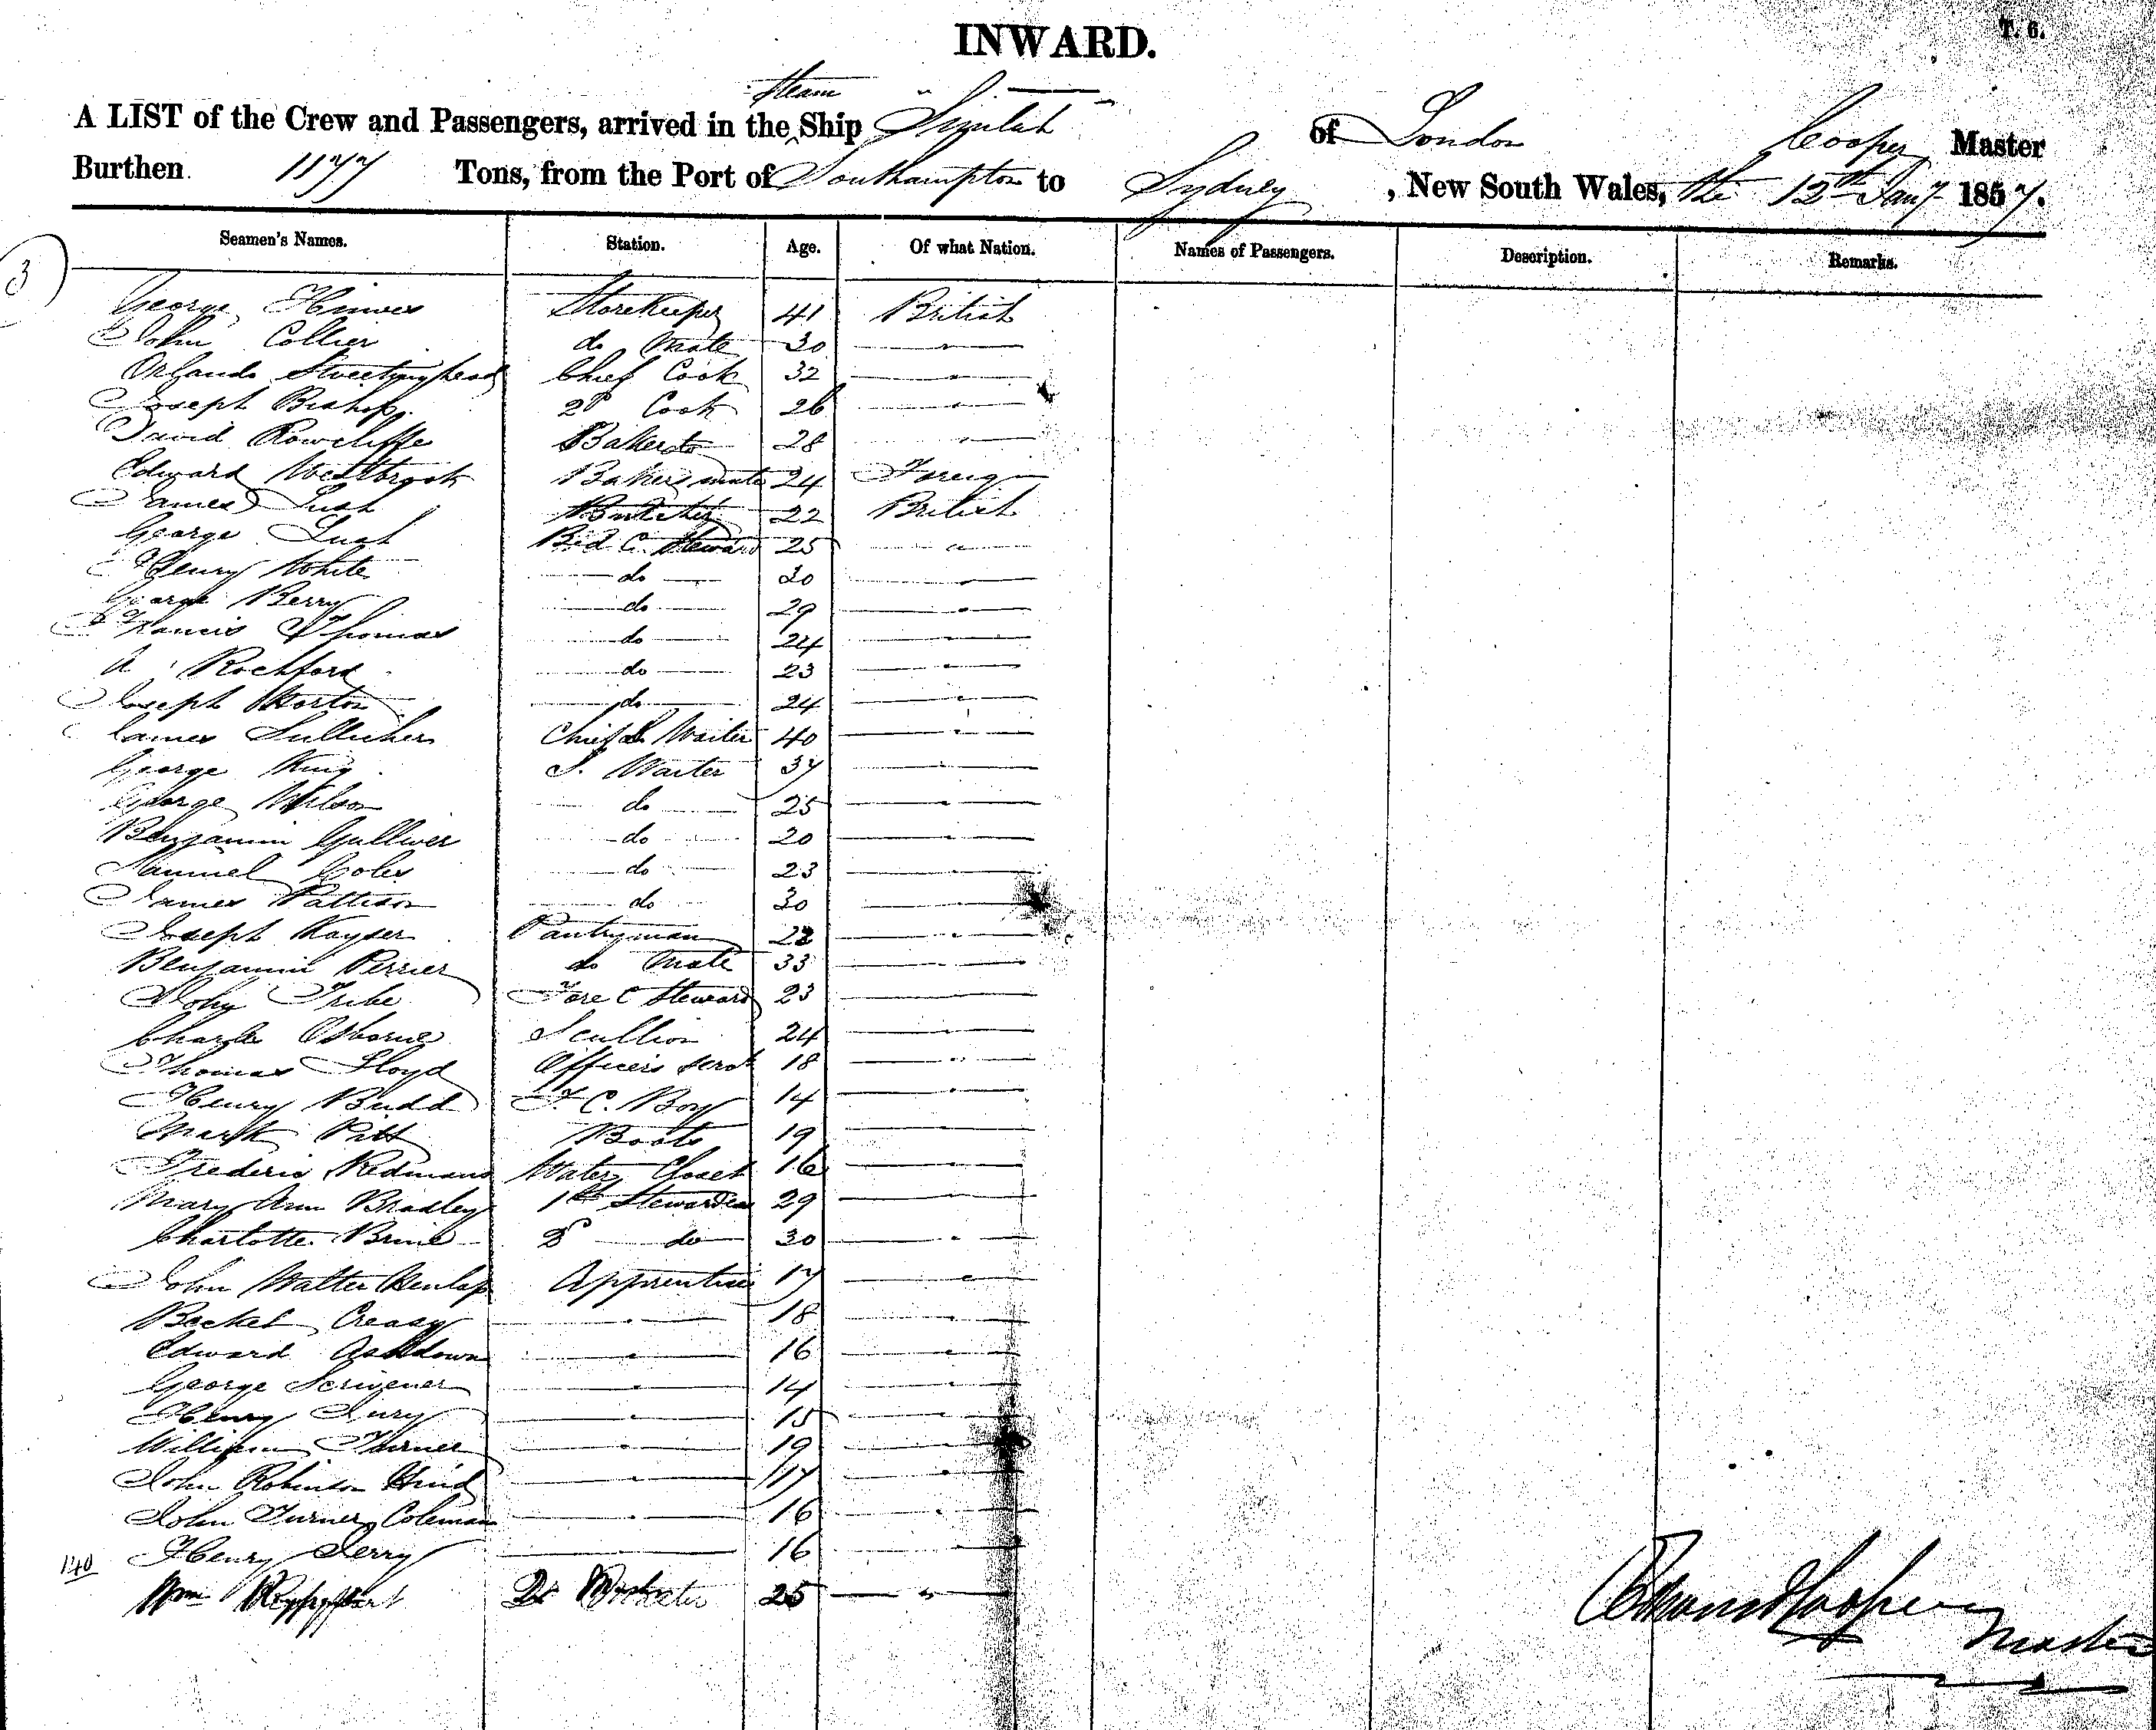 INWARD.
T. 6.
steam
A LIST of the Crew and Passengers, arrived in the Ship Simlah of London Cooper Master
Burthen 1177 Tons, from the Port of Southampton to Sydney, New South Wales, the 12th Jany 1857.
Seamen's Names. Station. Age. Of what Nation. Names of Passengers. Description. Remarks.
3
George Hinves Storekeeper 41 British
John Collier do Mate 30 "
Orlando Chief Cook 32 "
Joseph Bishop 2d Cook 26 "
David Rowcliffe Baker 28 "
Edward Westbrook Bakers mate 24 Foreign
James Lush Butcher 22 British
George Lush Bed C. Steward 25 "
Henry White do 20 "
George Berry do 29 "
Francis Thomas do 24 "
A Rochford do 23 "
Joseph Horton do 24 "
James Chief S. Waiter 40 "
George King S. Waiter 37 "
George Wilson do 25 "
Benjamin Gulliver do 20 "
Samuel Coles do 23 "
James Pattison do 30 "
Joseph Kayser Pantryman 22 "
Benjamin Perrier do Mate 33 "
John Tribe Fore C Steward 23 "
Charles Osborne Scullion 24 "
Thomas Lloyd Officers Servt 18 "
Henry Budd F. C. Boy 14 "
Mark Pitt Boots 19 "
Frederic Redmand Water Closet 16 "
Mary Ann Bradley 1st Stewardess 29 "
Charlotte Brine 2d do 30 "
John Walter Apprentice 17 "
Becket Creasy " 18 "
Edward Ashdown " 16 "
George Scrivener " 14 "
Henry Jury " 15 "
William Turner " 19 "
John Robinson Hind " 17 "
John Turner Coleman " 16 "
Henry Jerry 16 "
140
Wm 25 "
Cooper
Master